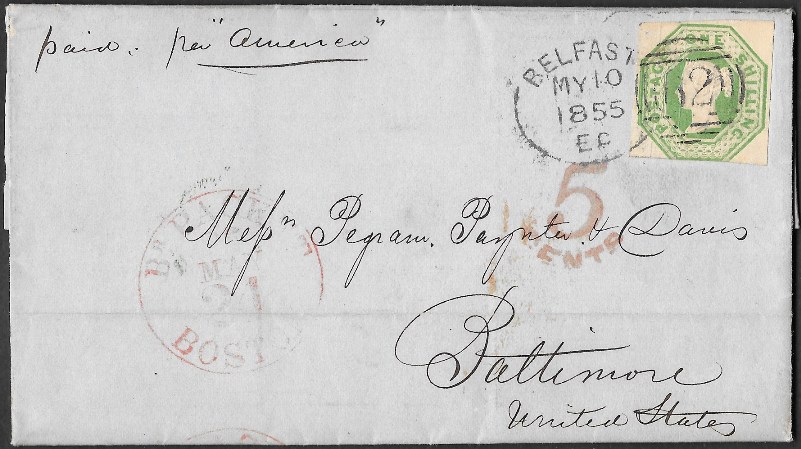 paid. per "America"
BELFAST
MY 10
1855
62
POSTAGE ONE SHILLING
5
CENTS
Br. PACKET
MAY
BOST
Messrs Pegram, Paynter & Davis
Baltimore
United States